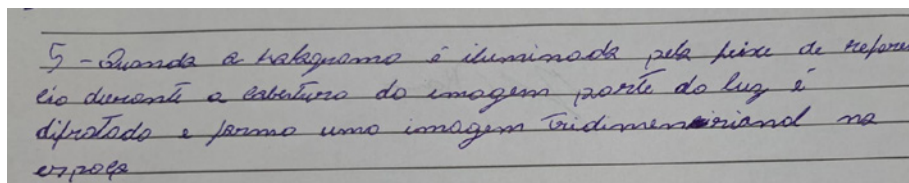 5 - Quando a holograma é iluminada pela feixe de referen
cia durante a cobertura da imagem parte da luz é
difratada e forma uma imagem tridimensional no
espaço